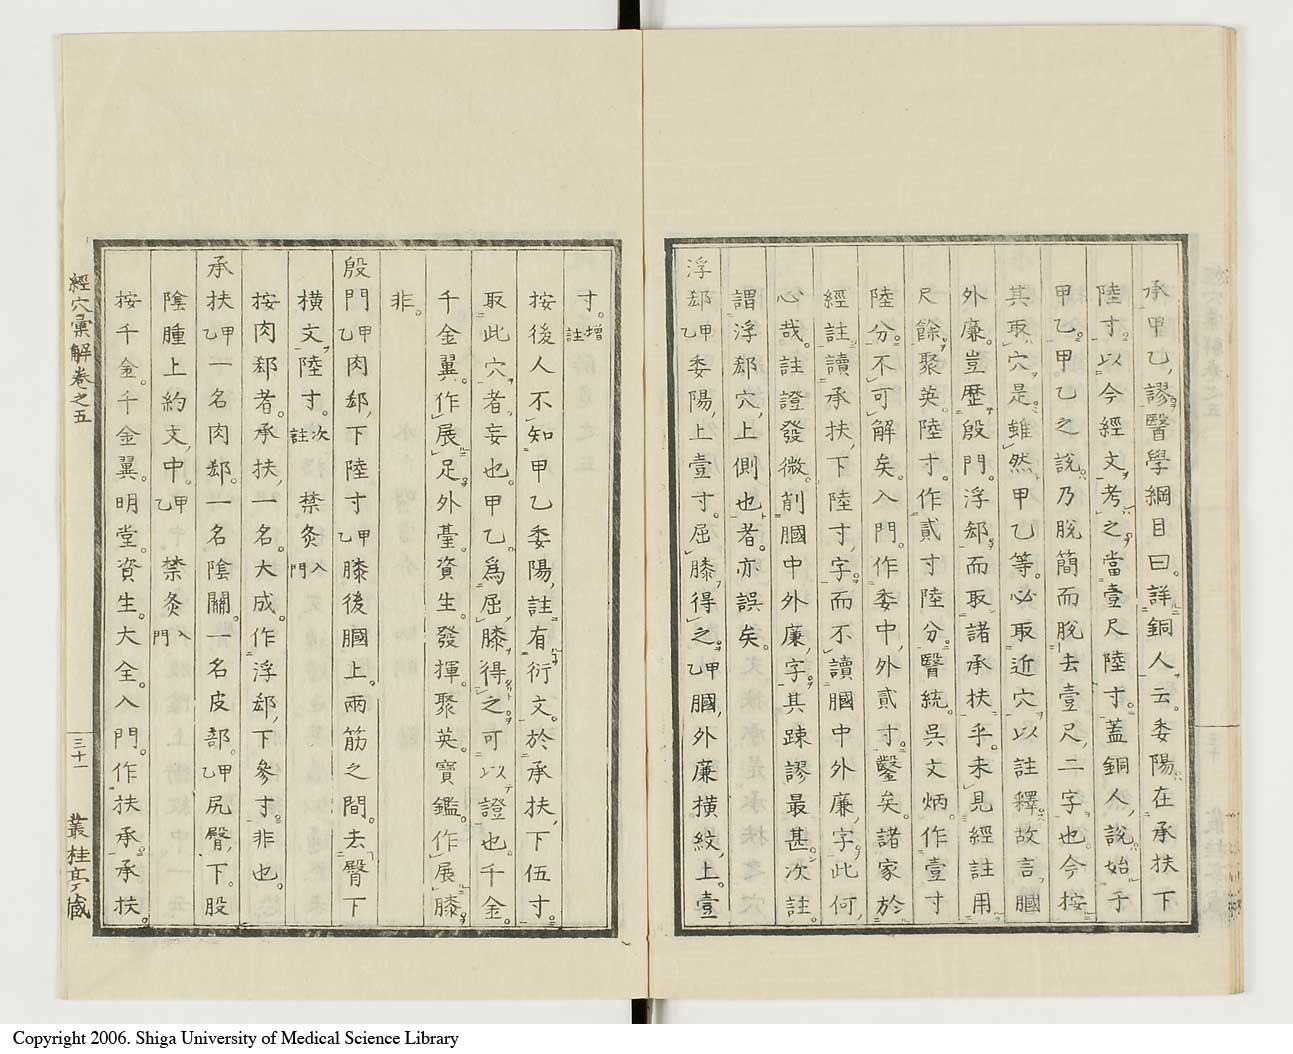 承甲乙謬醫學綱目曰詳銅人云委陽在承扶下
陸寸以今經文考之當壹尺陸寸蓋銅人說始于
甲乙甲乙之說乃脫簡而脫去壹尺二字也今按
其取穴是雖然甲乙等必取近穴以註釋故言膕
外廉豈歷殷門浮郄而取諸承扶乎未見經註用
尺餘聚英陸寸作貳寸陸分醫統吳文炳作壹寸
陸分不可解矣入門作委中外貳寸鑿矣諸家於
經註讀承扶下陸寸字而不讀膕中外廉字此何
心哉註證發微削膕中外廉字其疎謬最甚次註
謂浮郄穴上側也者亦誤矣
浮郄甲乙委陽上壹寸屈膝得之甲乙膕外廉橫紋上壹
寸增註
按後人不知甲乙委陽註有衍文於承扶下伍寸
取此穴者妄也甲乙爲屈膝得之可以證也千金
千金翼作展足外臺資生發揮聚英寶鑑作展膝
非
殷門甲乙肉郄下陸寸甲乙膝後膕上兩筋之間去臀下
橫文陸寸次註禁灸入門
按肉郄者承扶一名大成作浮郄下參寸非也
承扶甲乙一名肉郄一名陰關一名皮部甲乙尻臀下股
陰腫上約文中甲乙禁灸入門
按千金千金翼明堂資生大全入門作扶承承扶
經穴彙解卷之五
三十一
叢桂亭藏
Copyright 2006. Shiga University of Medical Science Library